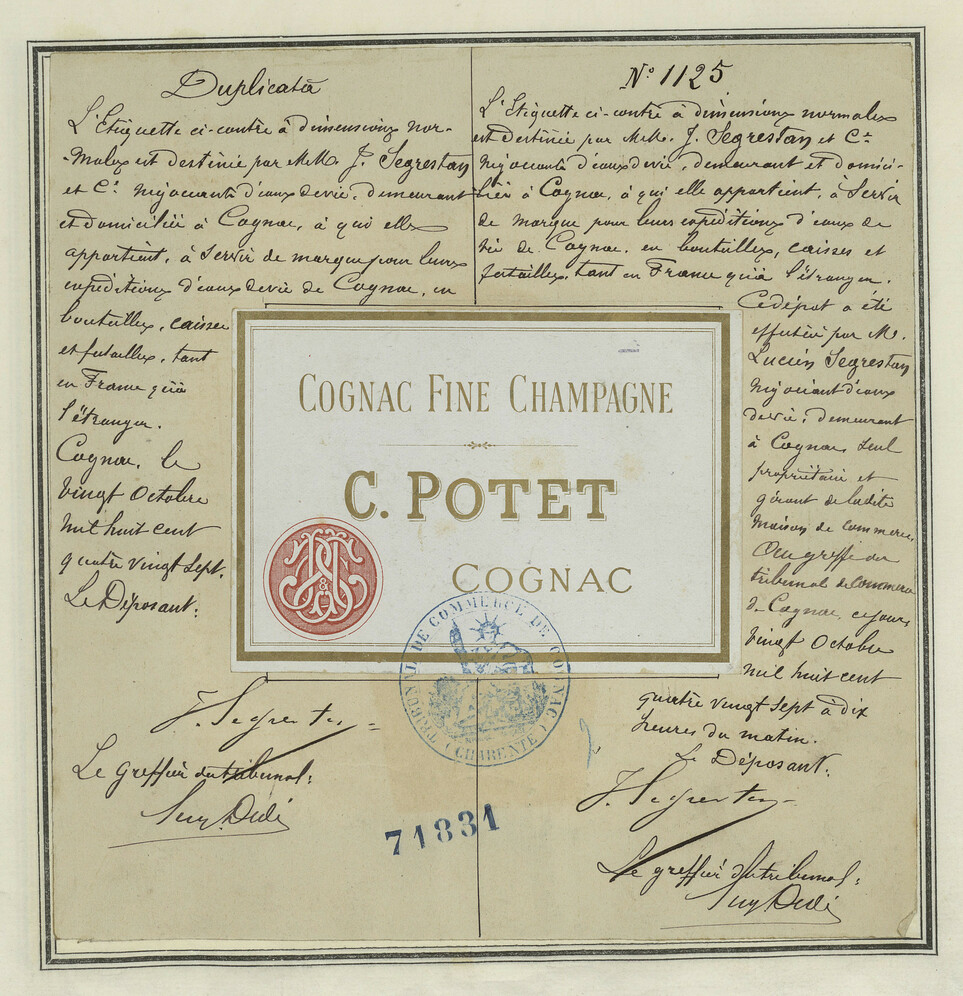 Duplicata
L'Etiquette ci-contre à dimensions nor-
-males est destinée par M.M. J. Segrestan
et Cie négociants d'eaux de vie, demeurant
et domicilié à Cognac, à qui elle
appartient, à servir de marque pour leurs
expéditions d'eaux de vie de Cognac, en
bouteilles, caisses
et futailles, tant
en France qu'à
l'étranger.
Cognac, le
vingt Octobre
mil huit cent
quatre vingt sept.
Le Déposant:
J. Segrestan
Le greffier du tribunal:
N° 1125
L'Etiquette ci-contre à dimensions normales
est destinée par M.M. J. Segrestan et Cie
négociants d'eaux de vie, demeurant et domici-
liés à Cognac, à qui elle appartient, à servir
de marque pour leurs expéditions d'eaux de
vie de Cognac, en bouteilles, caisses et
futailles, tant en France qu'à l'étranger.
Ce dépôt a été
effectué par M.
Lucien Segrestan
négociant d'eaux
de vie, demeurant
à Cognac, seul
propriétaire et
gérant de la dite
maison de commerce
Au greffe du
tribunal de commerce
de Cognac, ce jour
vingt Octobre
mil huit cent
quatre vingt sept à dix
heures du matin.
Le Déposant:
J. Segrestan
Le greffier du tribunal:
COGNAC FINE CHAMPAGNE
C. POTET
COGNAC
TRIBUNAL DE COMMERCE DE COGNAC
(CHARENTE)
71831